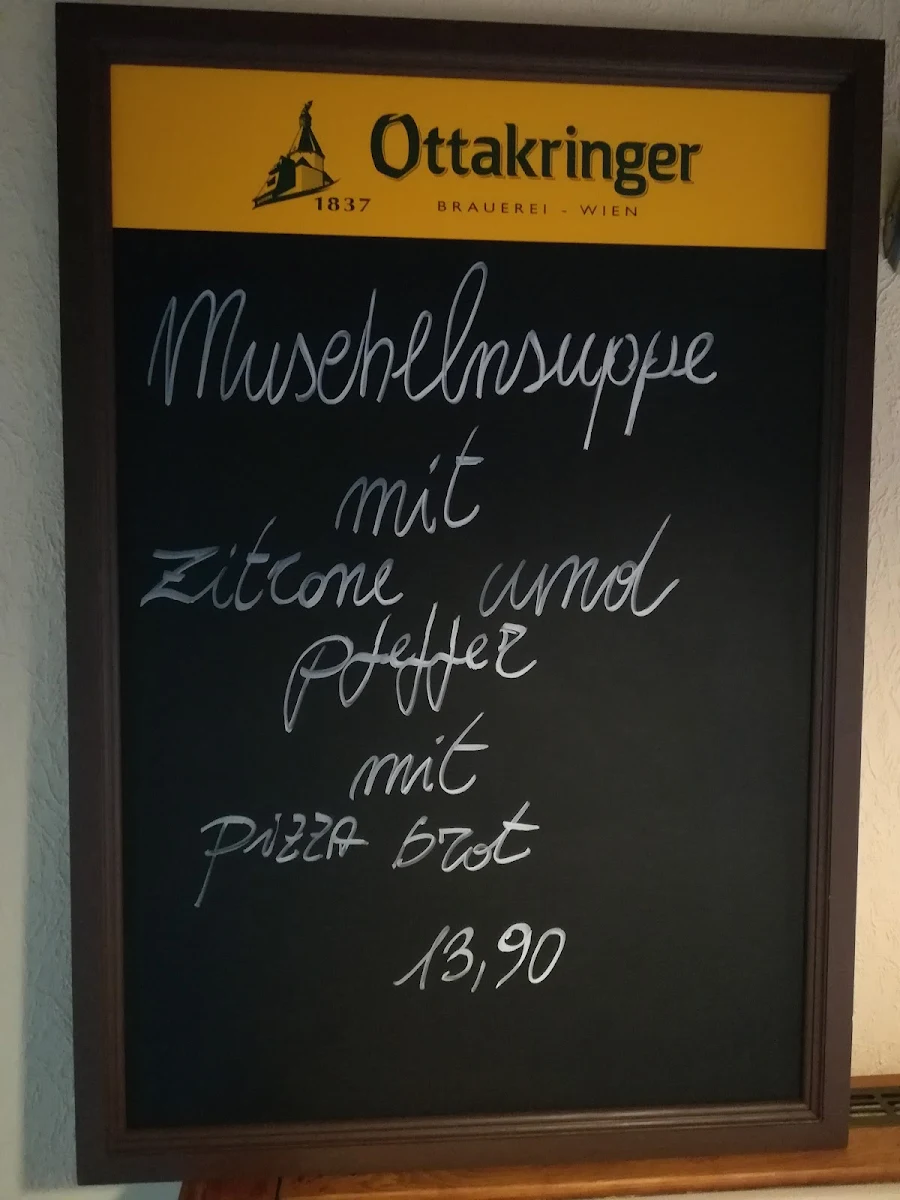 Ottakringer
1837 BRAUEREI - WIEN
Muschelnsuppe
mit
Zitrone und
Pfeffer
mit
PiZZA brot
13,90